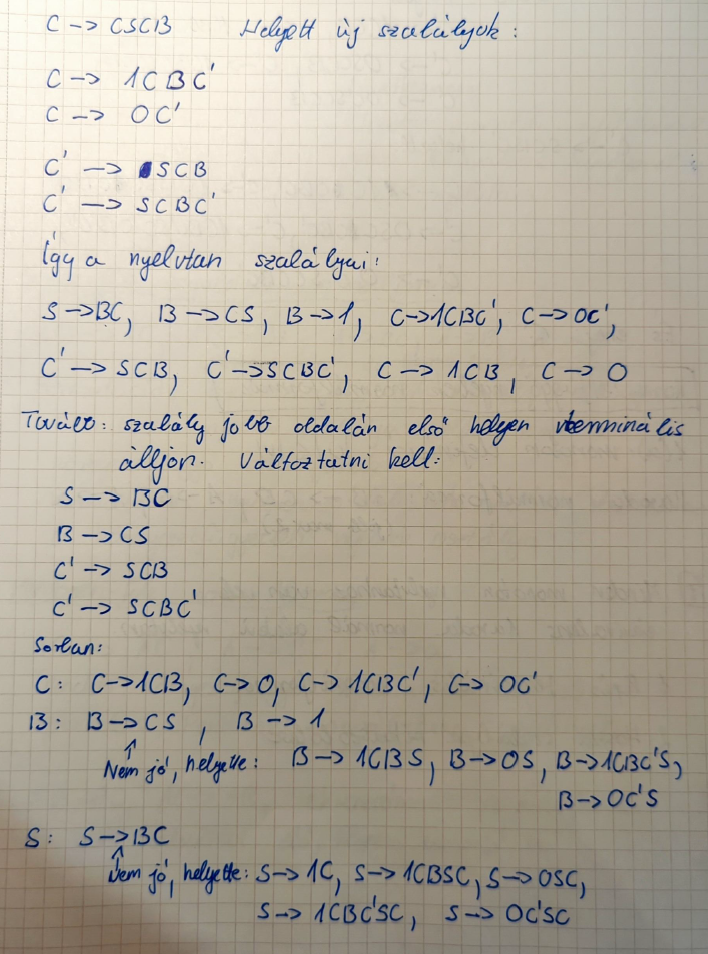 C -> CSCB Helyett új szabályok:
C -> 1CBC'
C -> 0C'
C' -> SCB
C' -> SCBC'
Így a nyelvtan szabályai:
S->BC, B->CS, B->1, C->1CBC', C->0C',
C'->SCB, C'->SCBC', C->1CB, C->0
Tovább: szabály jobb oldalán első helyen terminális
álljon. Változtatni kell:
S -> BC
B -> CS
C' -> SCB
C' -> SCBC'
Sorban:
C: C->1CB, C->0, C->1CBC', C->0C'
B: B->CS, B->1
Nem jó, helyette: B->1CBS, B->0S, B->1CBC'S,
B->0C'S
S: S->BC
Nem jó, helyette: S->1C, S->1CBSC, S->0SC,
S->1CBC'SC, S->0C'SC